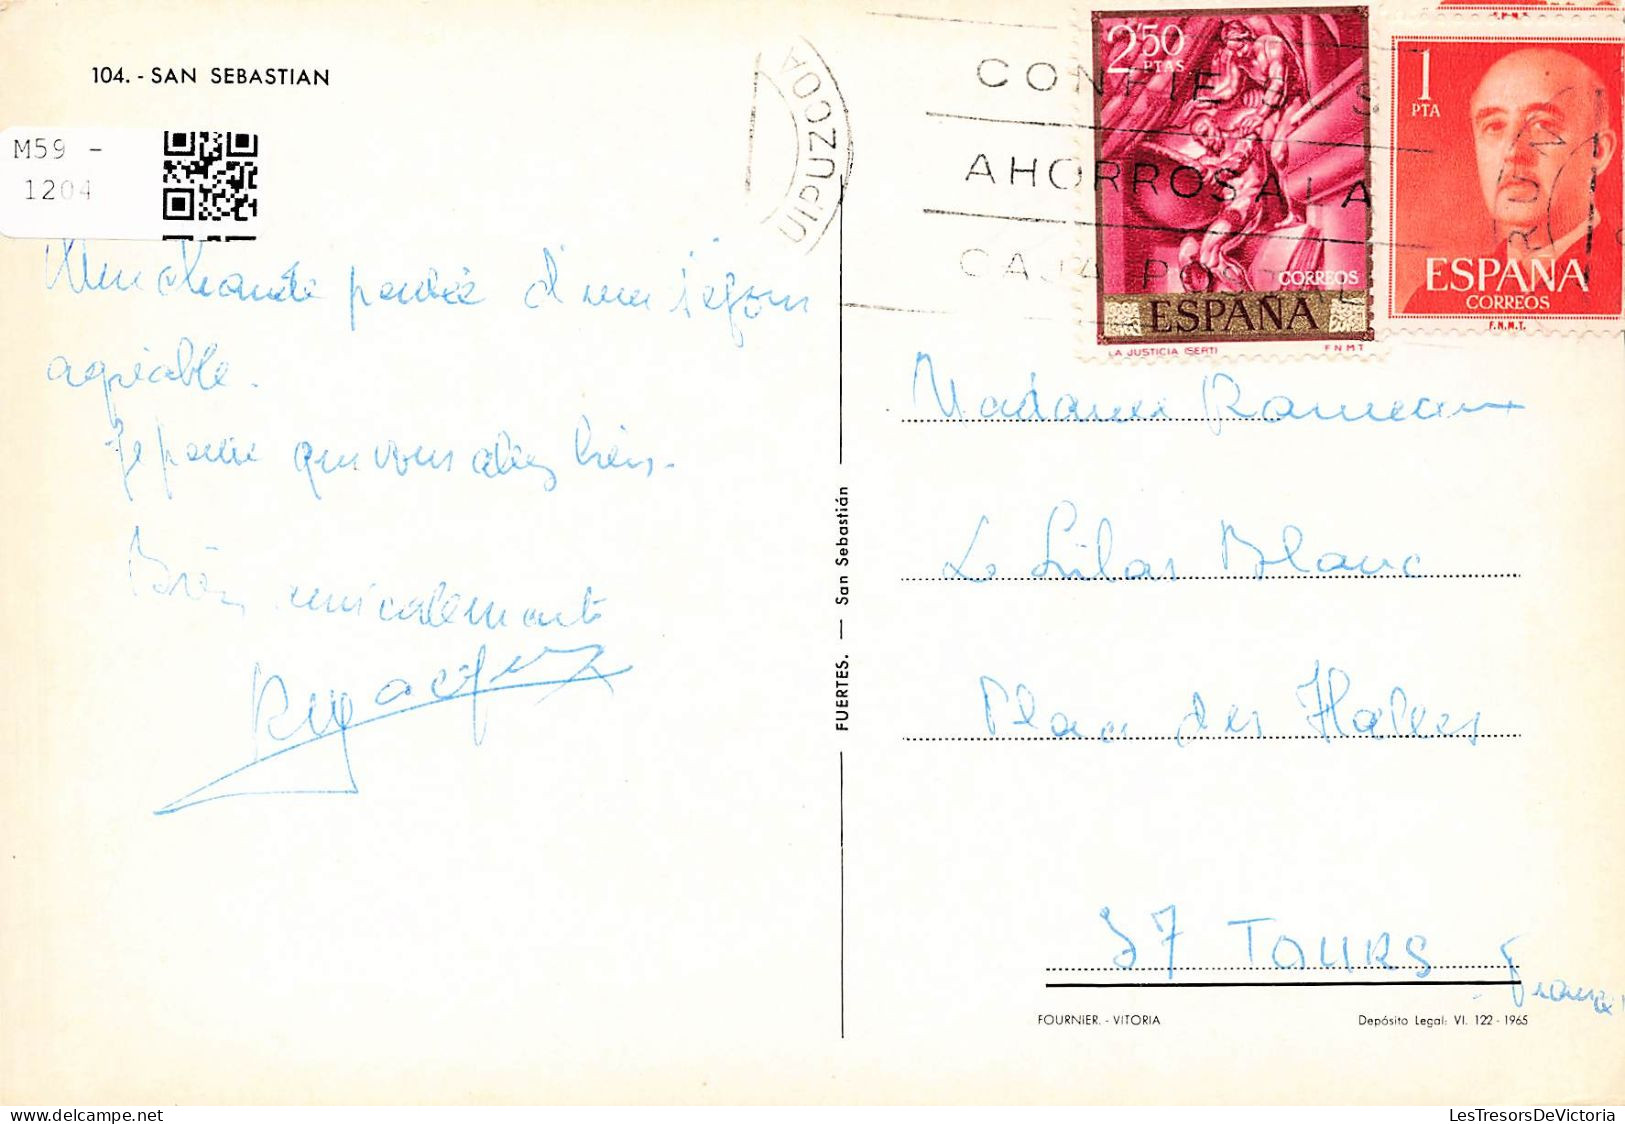 104. - SAN SEBASTIAN
M59 -
1204
Une charmante pensée d'un séjour
agréable.
Je pense que vous allez bien.
Bien amicalement
GUIPUZCOA
CONFIE SUS
AHORROS A LA
CAJA POSTAL
2'50
PTAS
CORREOS
ESPAÑA
LA JUSTICIA (SERT) F N M T
1
PTA
ESPAÑA
CORREOS
F.N.M.T.
Madame Rameaux
Le Lilas Blanc
Place des Halles
37 TOURS
France
FUERTES. — San Sebastián
FOURNIER. - VITORIA
Depósito Legal: VI. 122 - 1965
LesTresorsDeVictoria